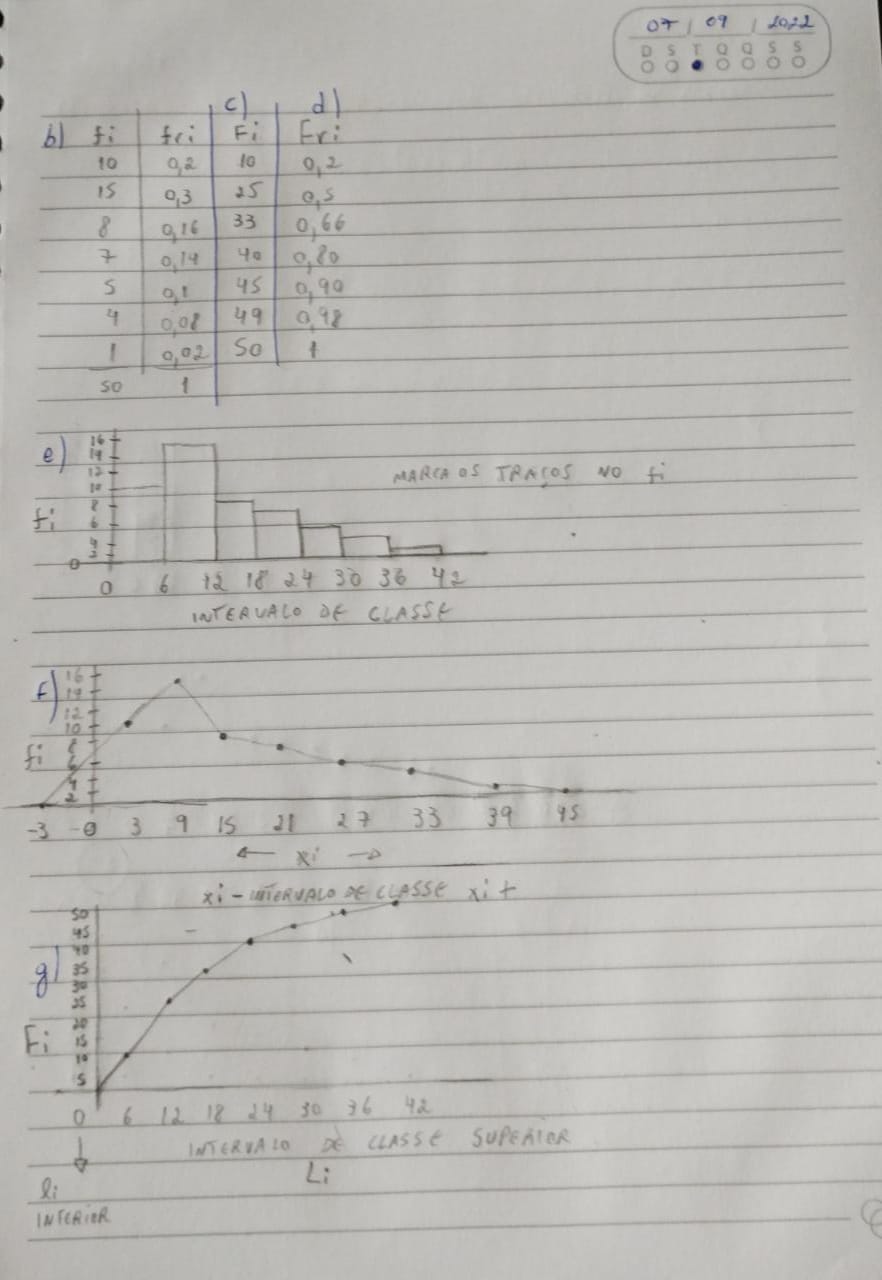 07 / 09 / 2022
D S T Q Q S S
c) d)
b) fi fri Fi Fri
10 0,2 10 0,2
15 0,3 25 0,5
8 0,16 33 0,66
7 0,14 40 0,80
5 0,1 45 0,90
4 0,08 49 0,98
1 0,02 50 1
50 1
e)
16
14
12
10
8
6
4
2
0
fi
MARCA OS TRAÇOS NO fi
0 6 12 18 24 30 36 42
INTERVALO DE CLASSE
f)
16
14
12
10
8
6
4
2
fi
-3 -0 3 9 15 21 27 33 39 45
← xi →
xi - INTERVALO DE CLASSE xi +
g)
50
45
40
35
30
25
20
15
10
5
Fi
0 6 12 18 24 30 36 42
INTERVALO DE CLASSE SUPERIOR
Li
li
INFERIOR